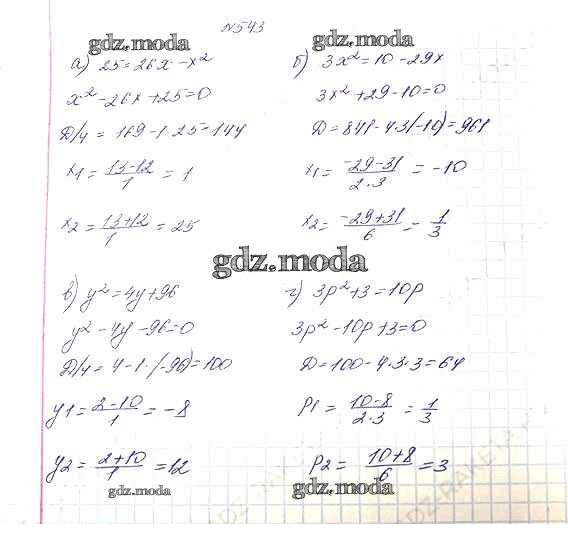 №543
gdz.moda
gdz.moda
а) 25=26x-x²
x²-26x+25=0
D/4 = 169-1·25=144
x1 = (13-12)/1 = 1
x2 = (13+12)/1 = 25
б) 3x²=10-29x
3x²+29-10=0
D=841-4·3(-10)=961
x1 = (-29-31)/(2·3) = -10
x2 = (-29+31)/6 = 1/3
gdz.moda
в) y²=4y+96
y²-4y-96=0
D/4 = 4-1·(-96)=100
y1 = (2-10)/1 = -8
y2 = (2+10)/1 = 12
gdz.moda
г) 3p²+3=10p
3p²-10p+3=0
D=100-4·3·3=64
p1 = (10-8)/(2·3) = 1/3
p2 = (10+8)/6 = 3
gdz.moda